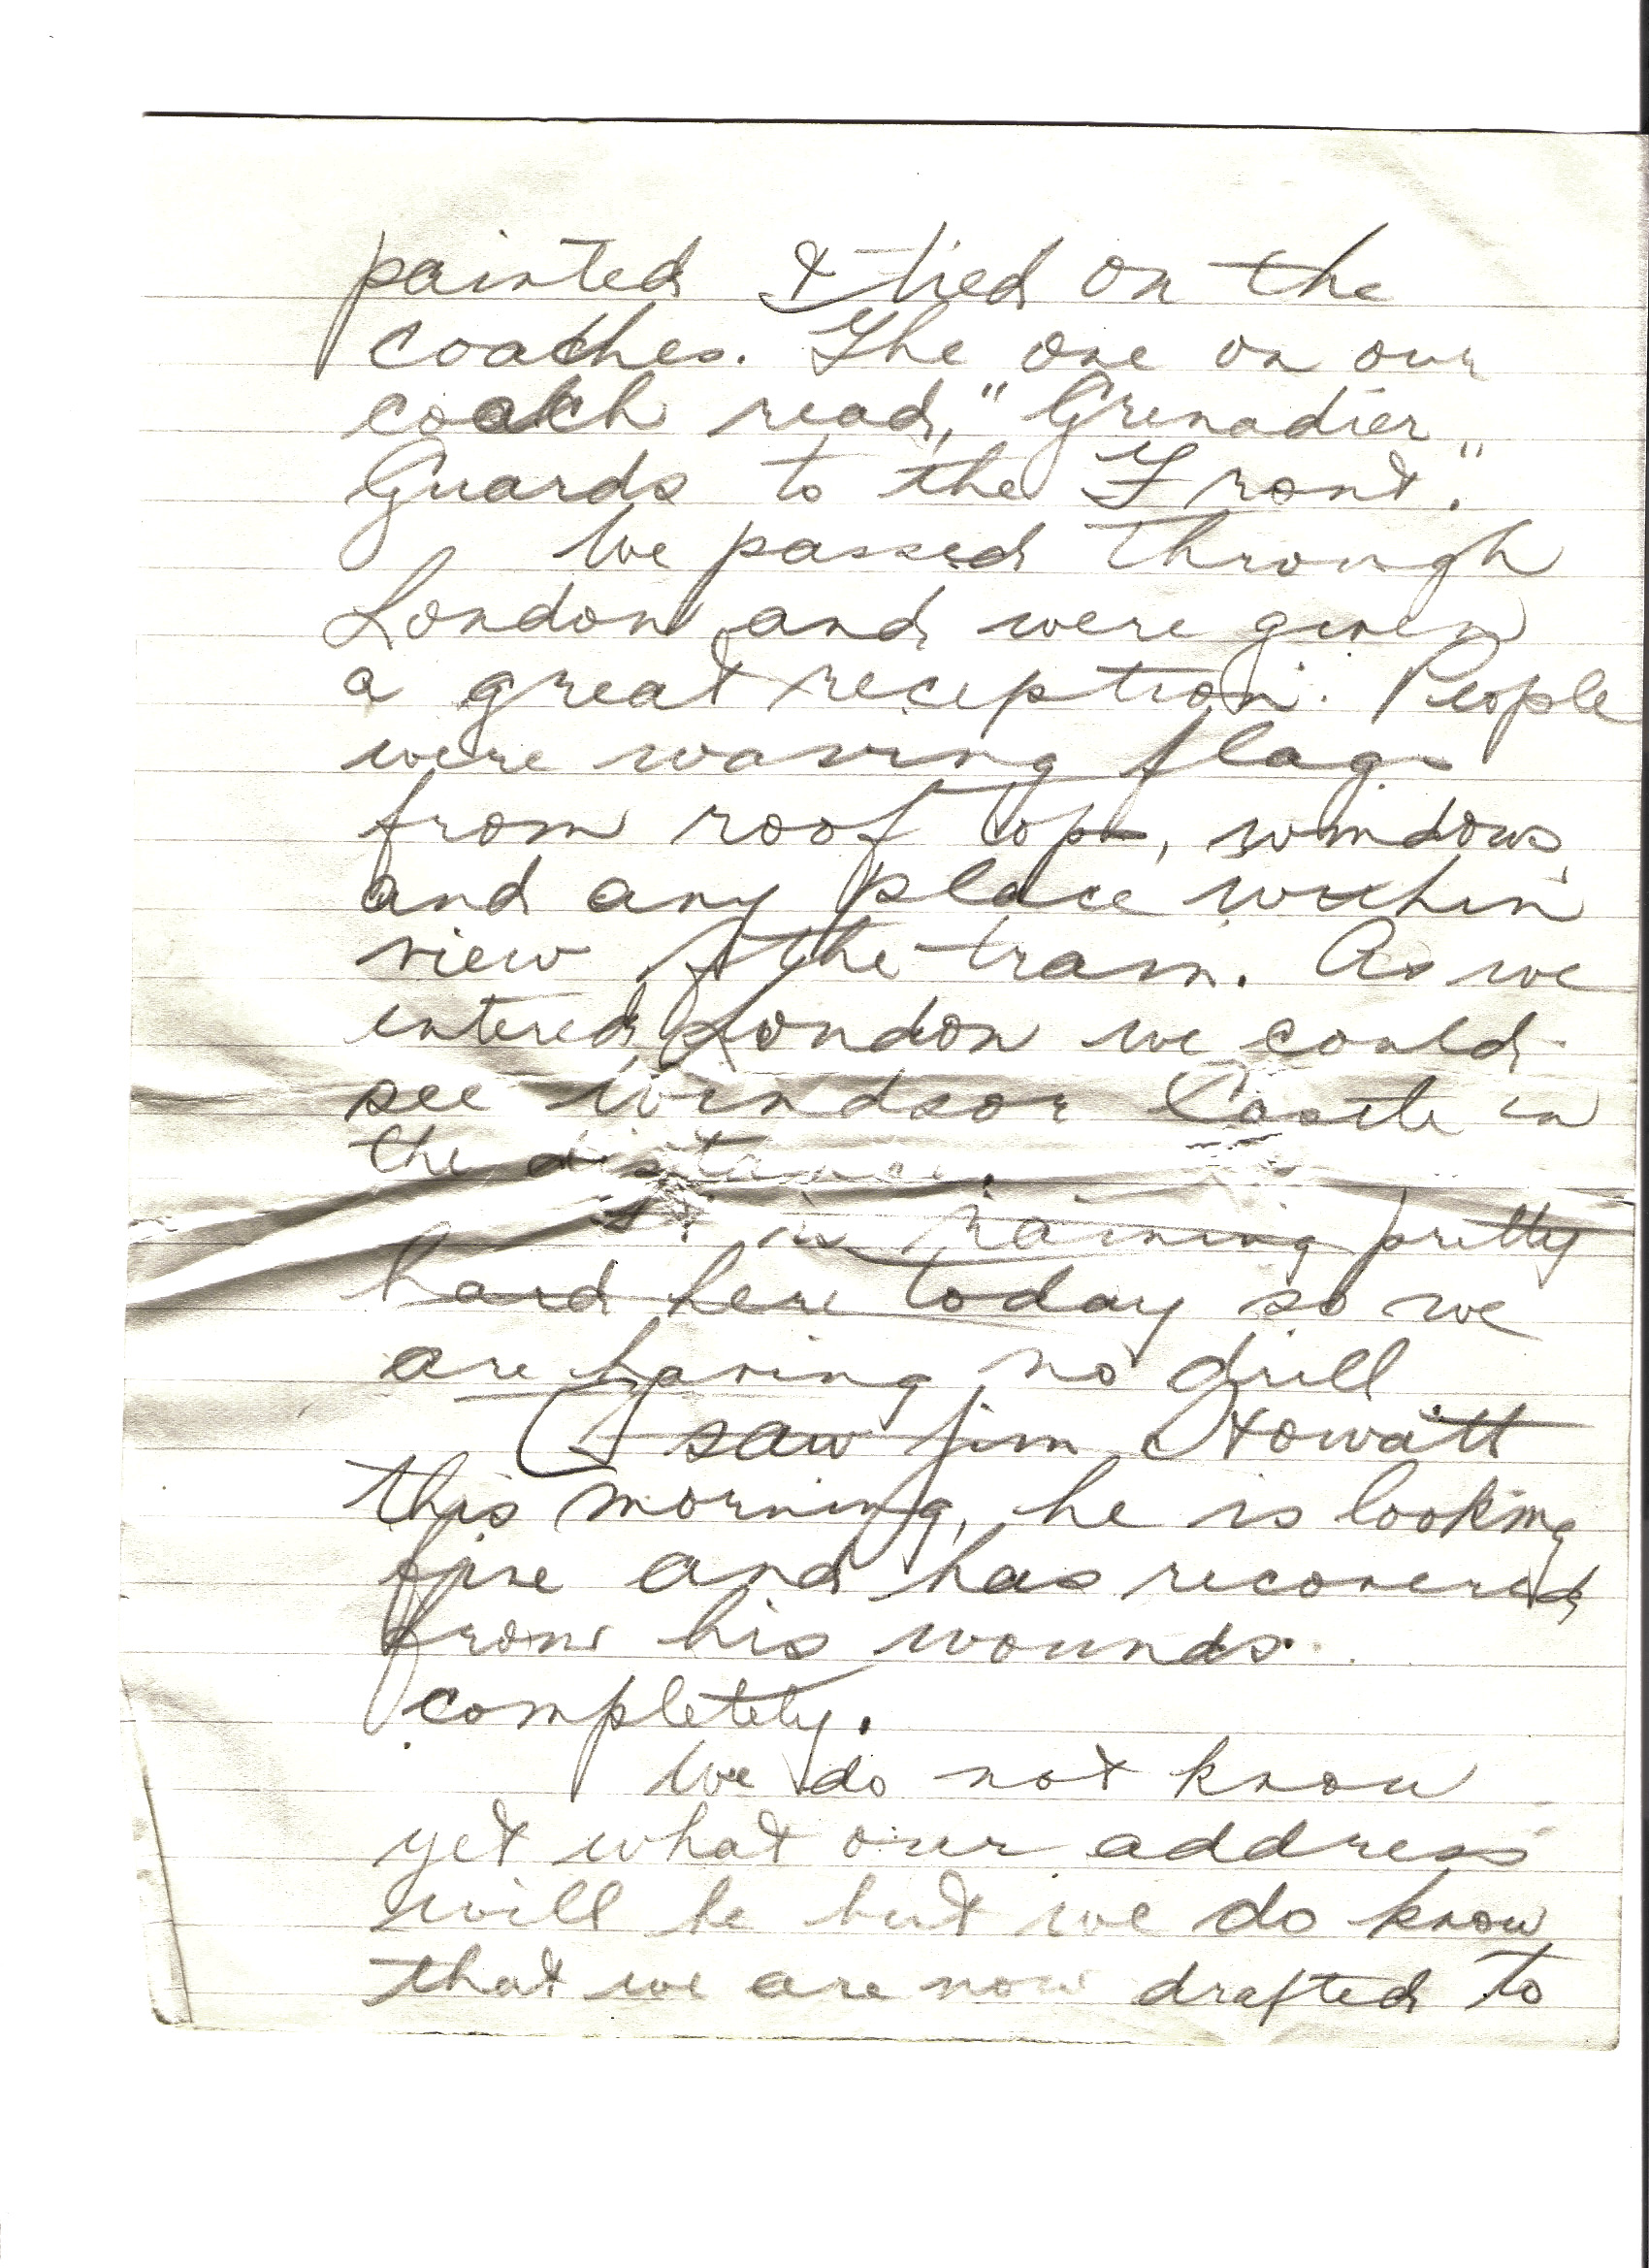 painted & tied on the
coaches. The one on our
coach read, "Grenadier
Guards to the Front."
We passed through
London and were given
a great reception. People
were waving flags
from roof tops, windows
and any place within
view of the train. As we
entered London we could
see Windsor Castle in
the distance.
It is raining pretty
hard here today so we
are having no drill
I saw Jim Howatt
this morning, he is looking
fine and has recovered
from his wounds.
completely.
We do not know
yet what our address
will be but we do know
that we are now drafted to